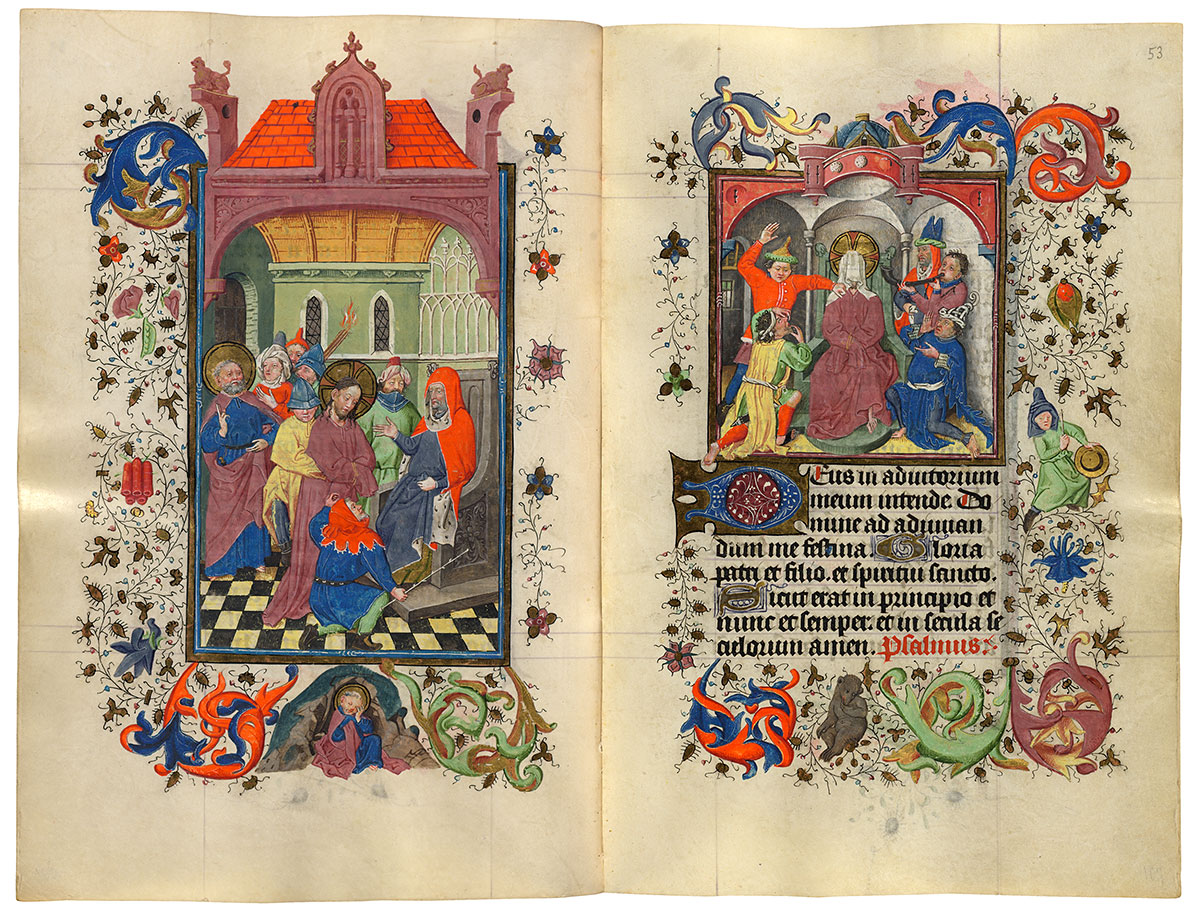 53
Deus in adiutorium
meum intende. Do
mine ad adiuuan
dum me festina Gloria
patri et filio. et spiritui sancto.
Sicut erat in principio et
nunc et semper. et in secula se
culorum amen. Psalmus